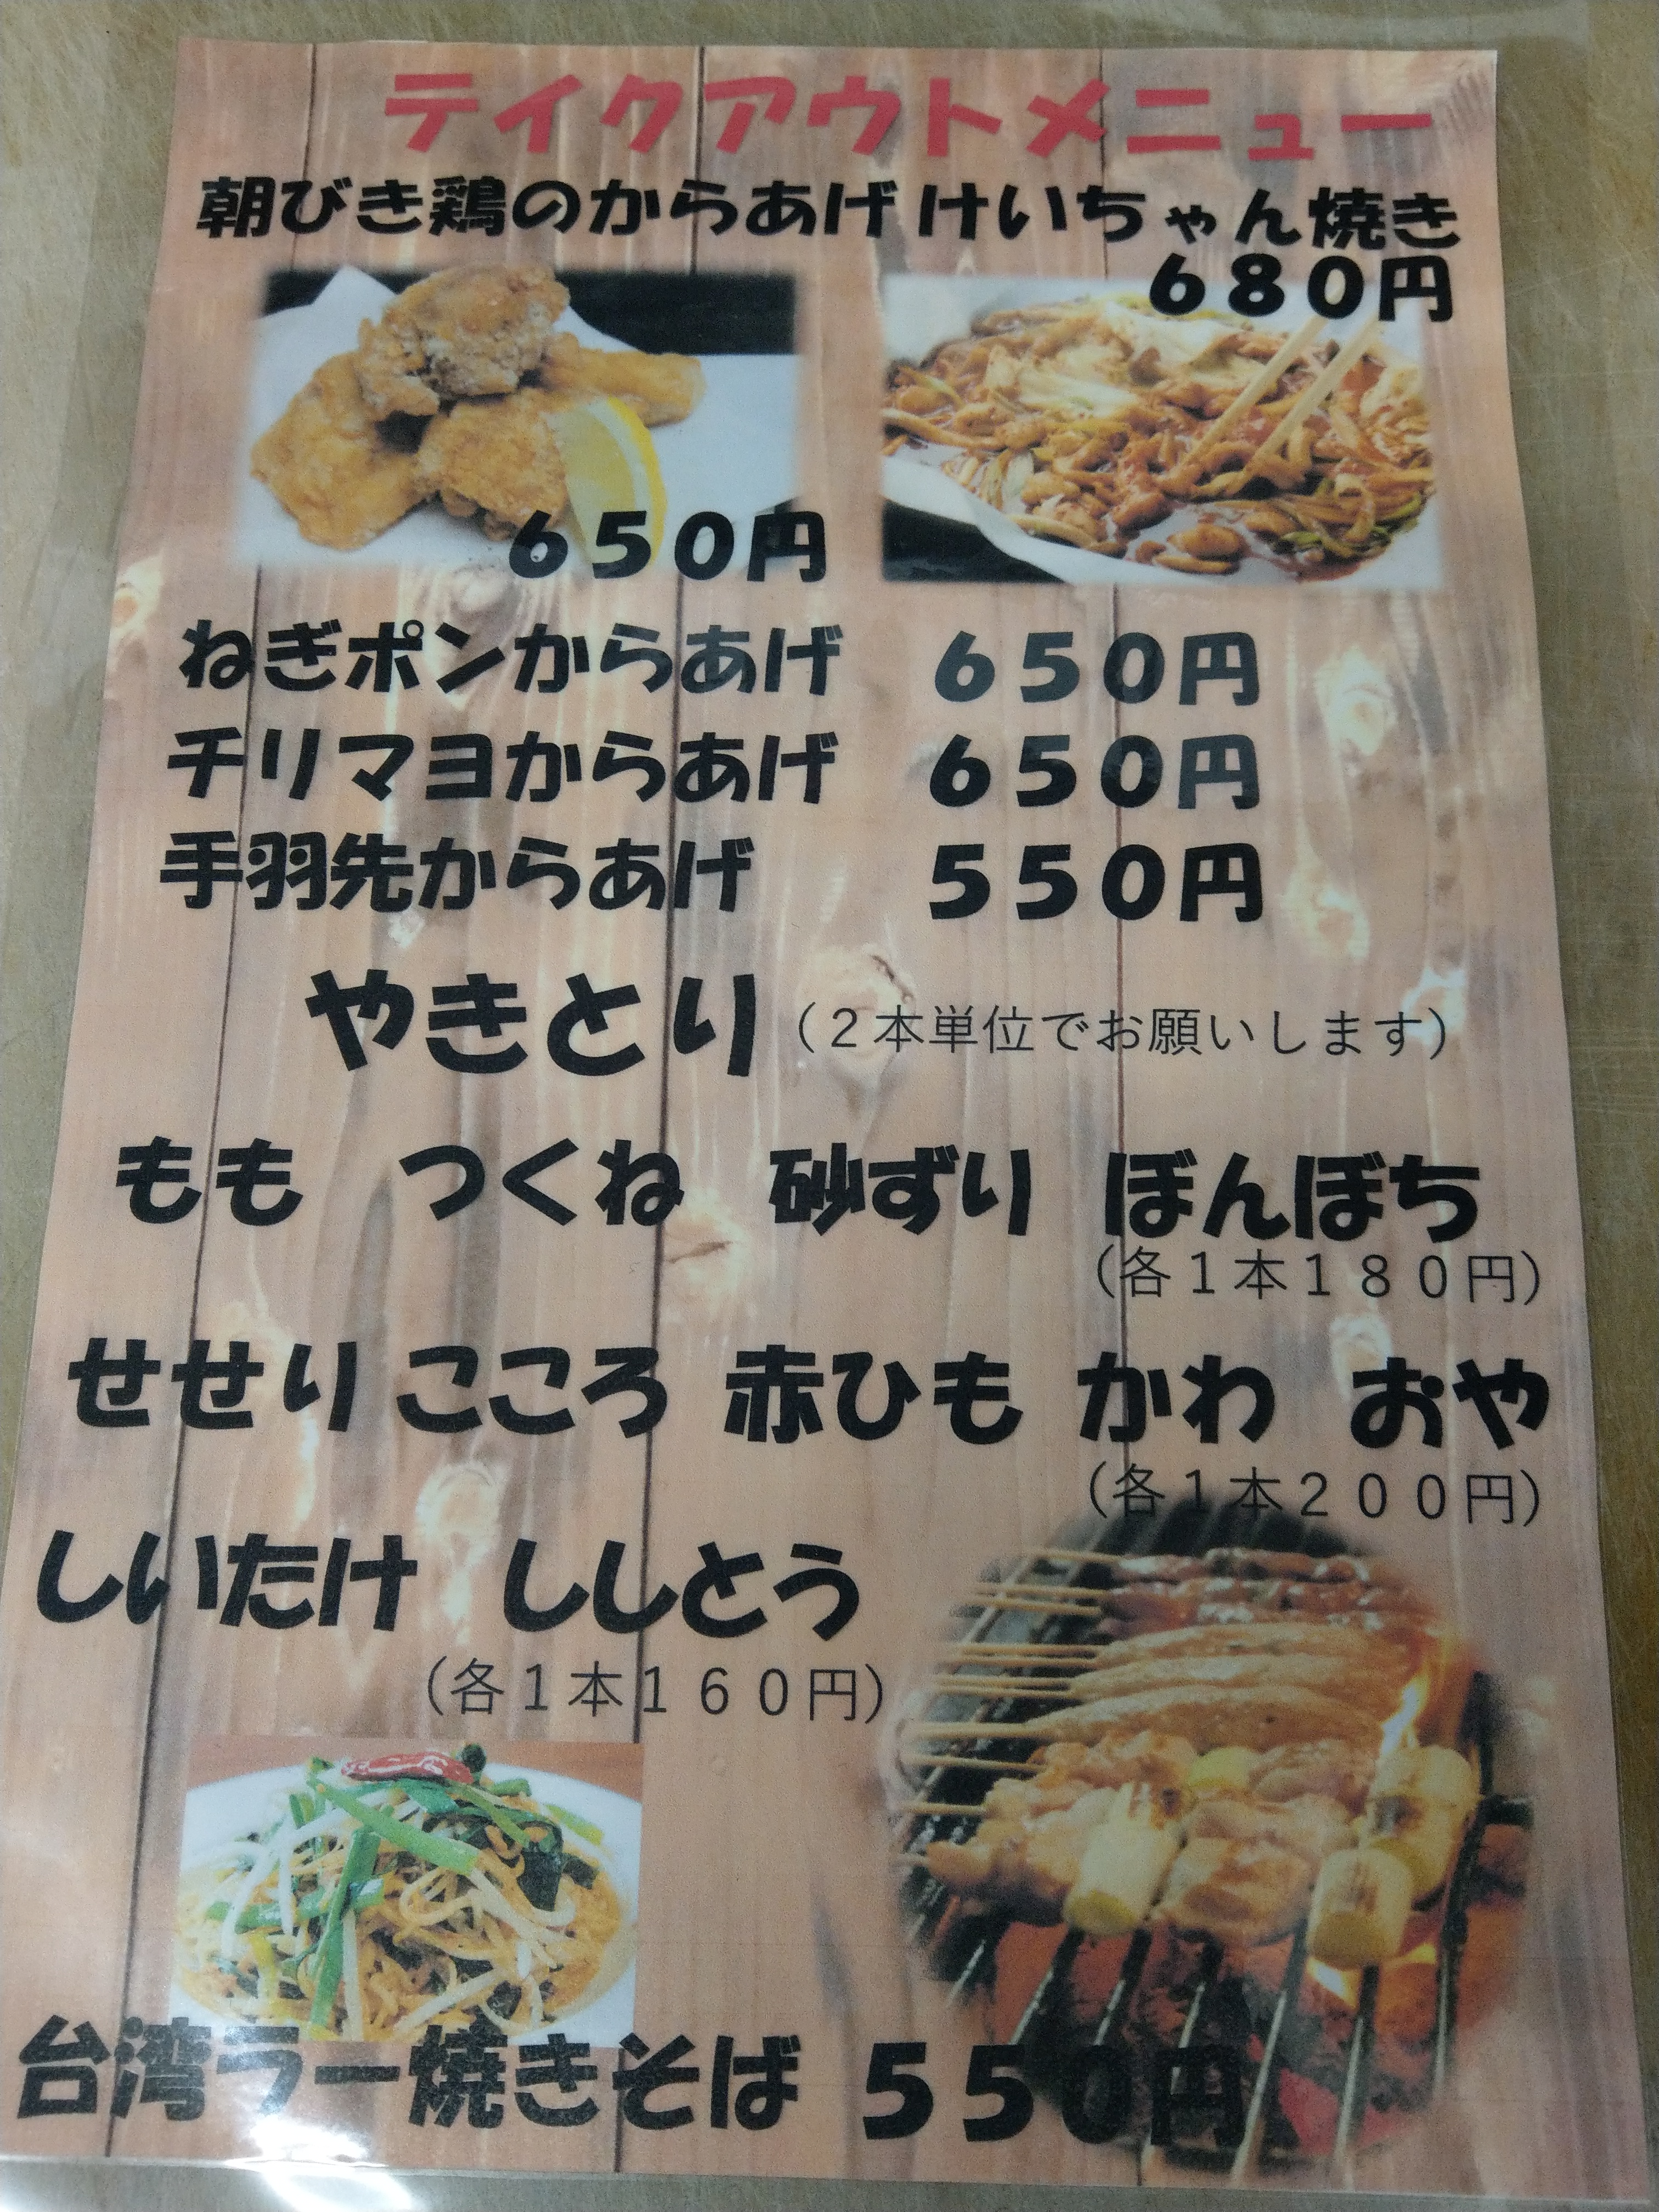 テイクアウトメニュー
朝びき鶏のからあげ けいちゃん焼き
680円
650円
ねぎポンからあげ 650円
チリマヨからあげ 650円
手羽先からあげ 550円
やきとり（2本単位でお願いします）
もも つくね 砂ずり ぼんぼち
（各1本180円）
せせり こころ 赤ひも かわ おや
（各1本200円）
しいたけ ししとう
（各1本160円）
台湾ラー焼きそば 550円